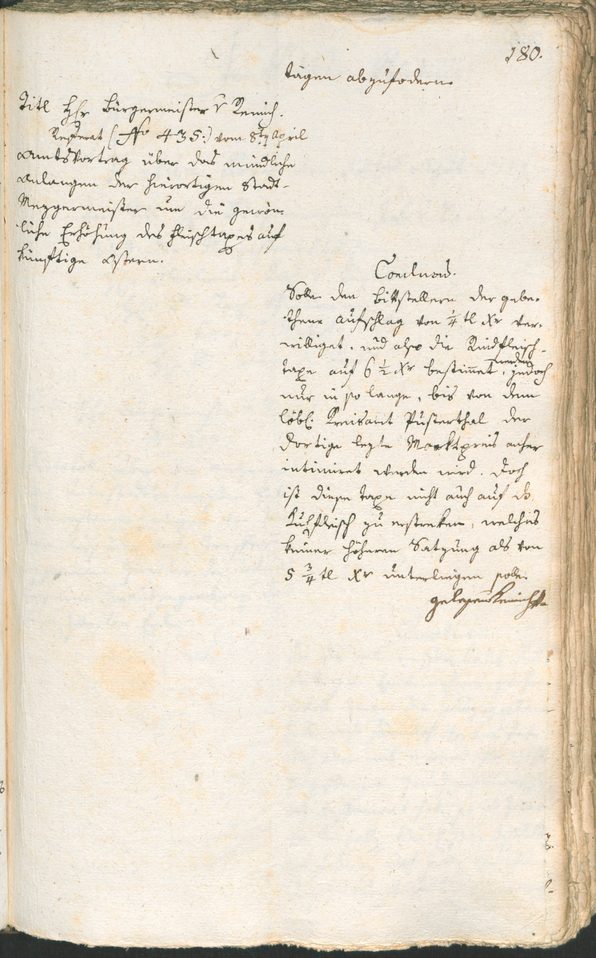 180.
tägen abzufodern.
Titl Hr Bürgermeister v Kemich.
Referat (No 435:) vom 8ten April
Amtsvortrag über das mündliche
Anlangen der hierortigen Stadt-
Mezgermeister um die gewön-
liche Erhöhung des Fleischtaxes auf
künftige Ostern.
Conclusum.
Solle den Bittstellern der gebe-
thene Aufschlag von 1/4 tl Xr ver-
williget, und also die Rindfleisch-
taxe auf 6 1/2 Xr bestimmet werden, jedoch
nur in so lange, bis von dem
löbl. Kreisamt Pusterthal der
dortige lezte Marktpreis anher
intimiret werden wird. Doch
ist diese Taxe nicht auch auf das
Kuhfleisch zu erstreken, welches
keiner höheren Satzung als von
5 3/4 tl Xr unterliegen solle.
gelesen Kemich